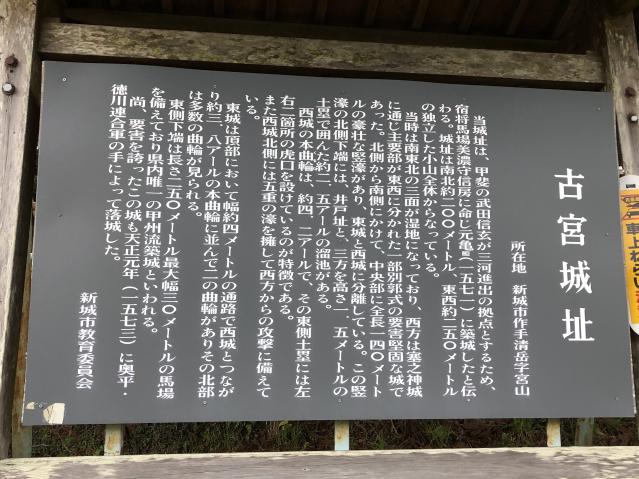 古宮城址
所在地　新城市作手清岳字宮山
当城址は、甲斐の武田信玄が三河進出の拠点とするため、
宿将馬場美濃守信房に命じ元亀二（一五七一）に築城したと伝
わる。城址は南北約二〇〇メートル、東西約二五〇メートル
の独立した小山全体からなっている。
当時は南東北の三面が湿地になっており、西方は塞之神城
に通じ主要部が東西に分かれた一部別郭式の要害堅固な城で
あった。北側から南側にかけて、中央部に全長一四〇メート
ルの豪壮な竪濠があり、東城と西城に分離している。この竪
濠の北側下端には、井戸址と、三方を高さ一、五メートルの
土塁で囲んだ約二、五アールの溜池がある。
西城の本曲輪は、約四、二アールで、その東側土塁には左
右二箇所の虎口を設けているのが特徴である。
また西城北側には五重の濠を擁して西方からの攻撃に備えて
いる。
東城は頂部において幅約四メートルの通路で西城とつなが
り約三、八アールの本曲輪に並んで二の曲輪がありその北部
は多数の曲輪が見られる。
東側下端は長さ二五〇メートル最大幅三〇メートルの馬場
を備えており県内唯一の甲州流築城といわれる。
尚、要害を誇ったこの城も天正元年（一五七三）に奥平・
徳川連合軍の手によって落城した。
新城市教育委員会